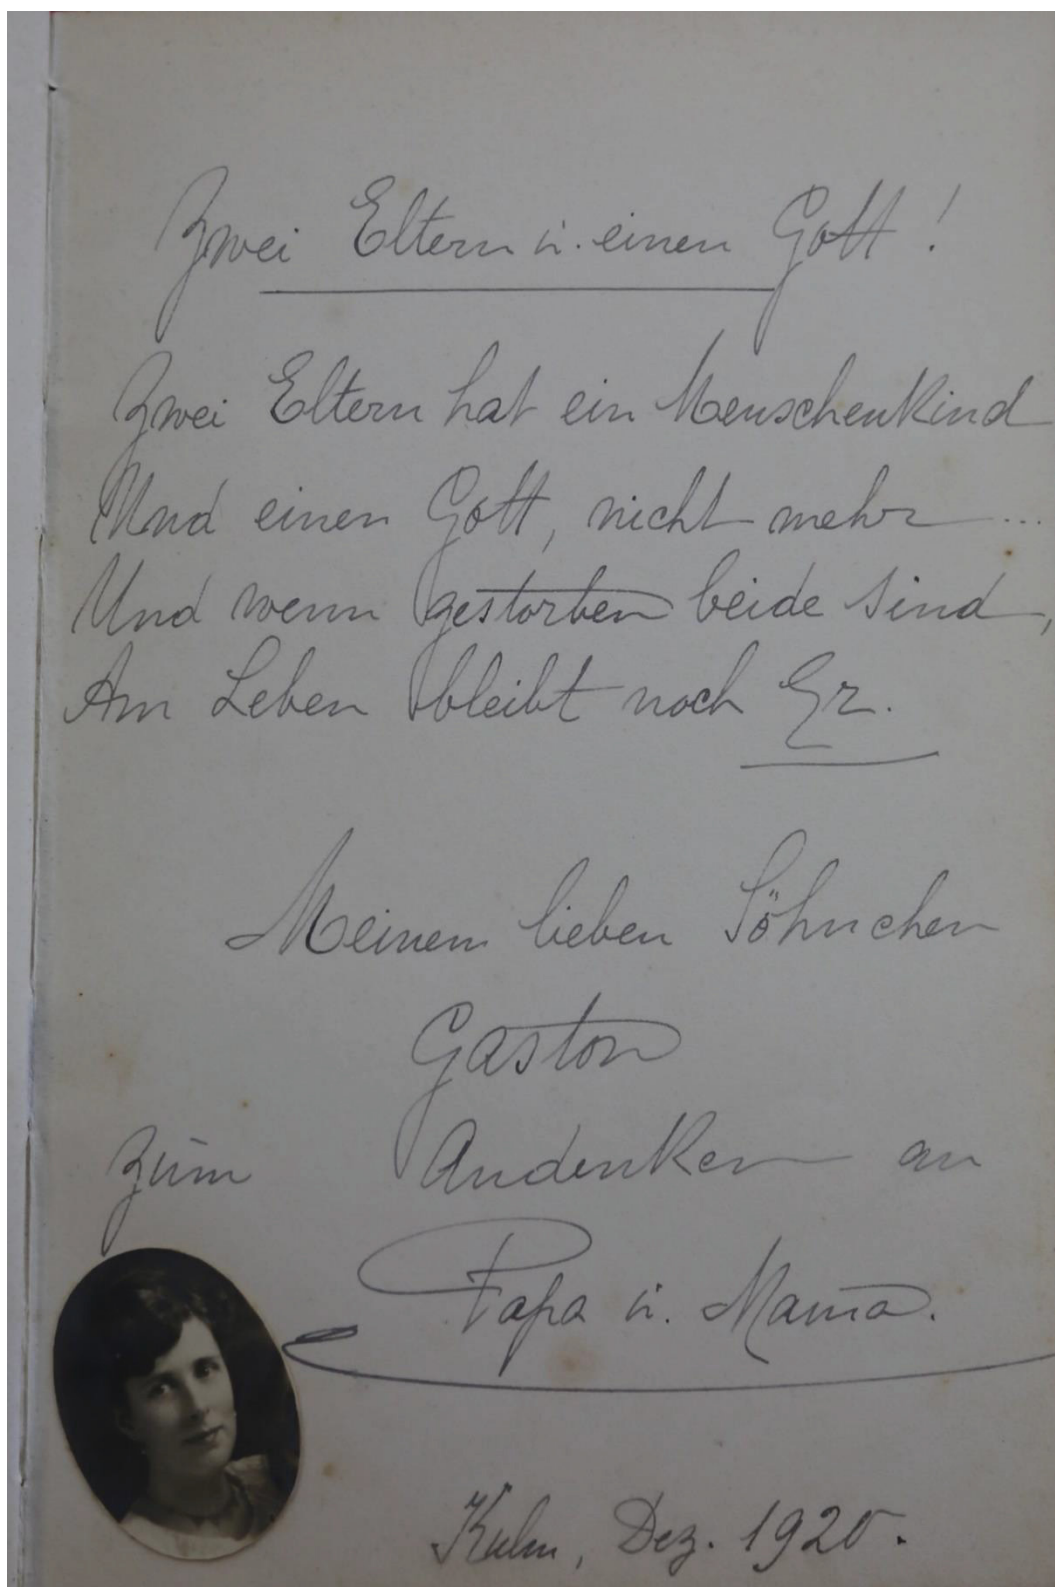 Zwei Eltern u. einen Gott!
Zwei Eltern hat ein Menschenkind
Und einen Gott, nicht mehr ...
Und wenn gestorben beide sind,
Am Leben bleibt noch Er.
Meinem lieben Söhnchen
Gaston
zum Andenken an
Papa u. Mama.
Kulm, Dez. 1920.